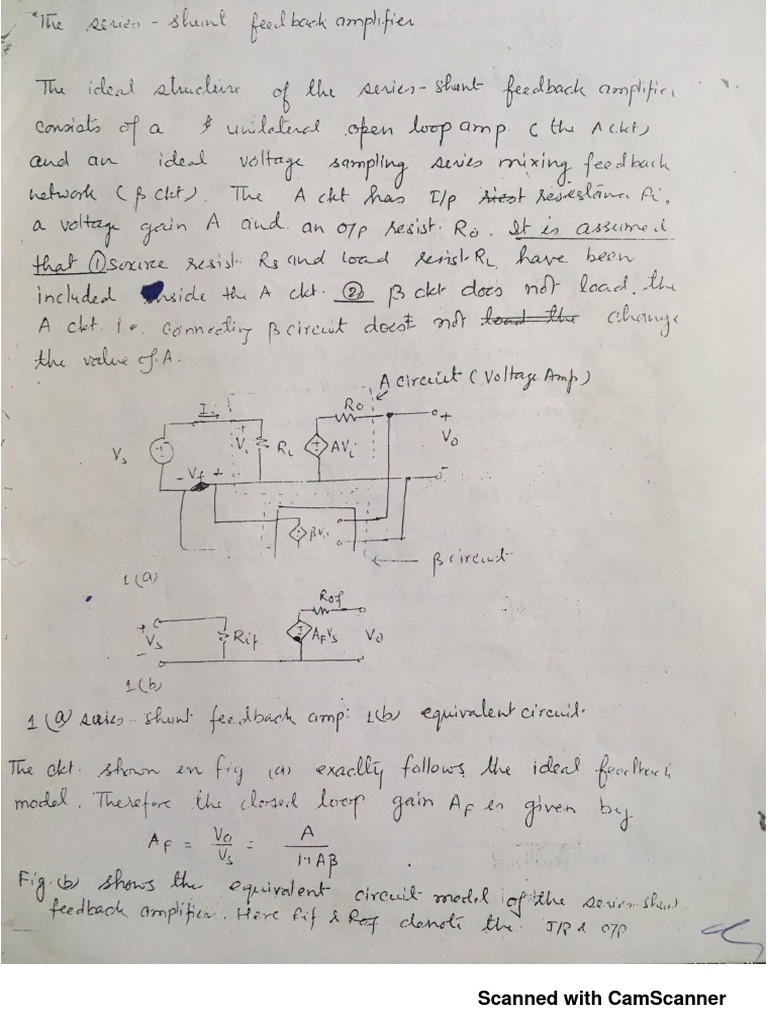 The series-shunt feedback amplifier
The ideal structure of the series-shunt feedback amplifier
consists of a unilateral open loop amp. (the A ckt)
and an ideal voltage sampling series mixing feedback
network (β ckt). The A ckt has I/p resistance Ri,
a voltage gain A and an o/p resist. Ro. It is assumed
that ① source resist. Rs and load resist. RL have been
included inside the A ckt. ② β ckt does not load the
A ckt. i.e. connecting β circuit does not change
the value of A.
A circuit (Voltage Amp)
Ii
Ro
+
Vs
Vi
Ri
AVi
Vo
- Vf +
-
βVo
β circuit
1(a)
Rof
+
Vs
Rif
AFVs
Vo
-
1(b)
1(a) series-shunt feedback amp: 1(b) equivalent circuit.
The ckt. shown in fig (a) exactly follows the ideal feedback
model. Therefore the closed loop gain AF is given by
AF = Vo/Vs = A/1+Aβ
Fig. (b) shows the equivalent circuit model of the series-shunt
feedback amplifier. Here Rif & Rof denote the I/P & O/P
Scanned with CamScanner